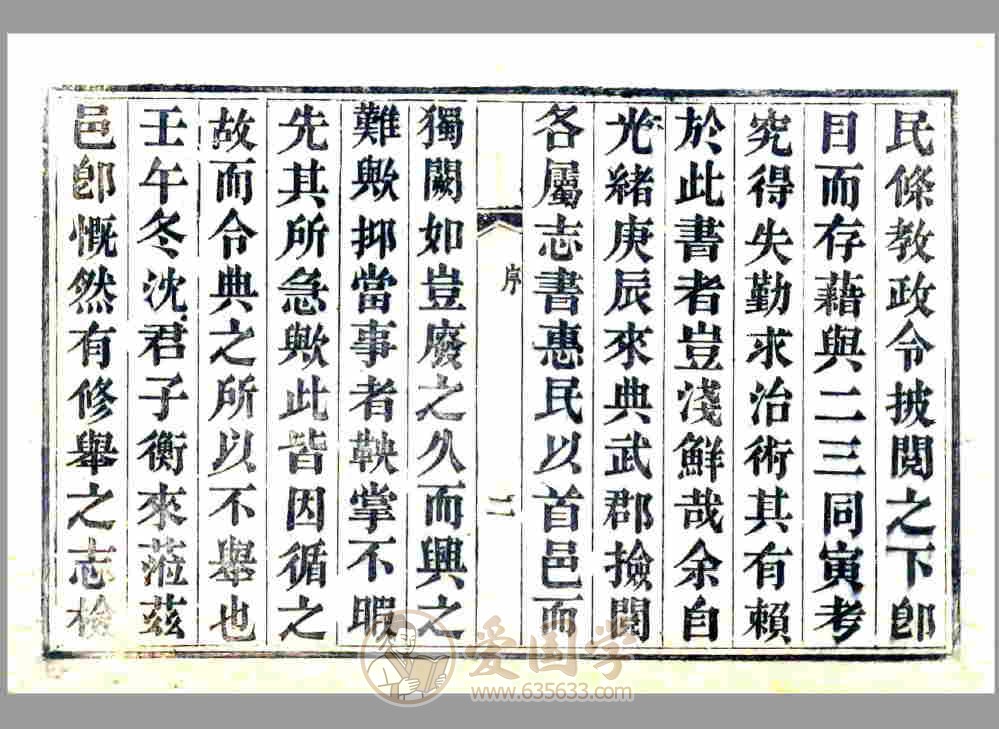 民條教政令披閱之下卽
目而存藉與二三同寅考
究得失勤求治術其有賴
於此書者豈淺鮮哉余自
光緒庚辰來典武郡撿閱
各屬志書惠民以首邑而
序
二
獨闕如豈廢之久而興之
難歟抑當事者鞅掌不暇
先其所急歟此皆因循之
故而令典之所以不舉也
壬午冬沈君子衡來蒞茲
邑卽慨然有修舉之志檢
爱国学
www.635633.com